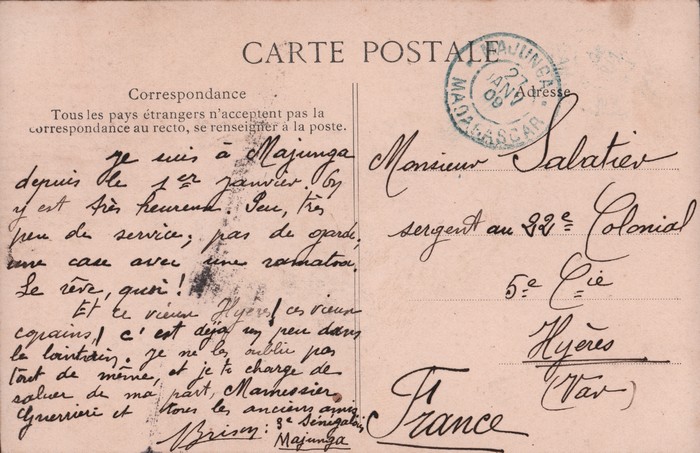 CARTE POSTALE
MAJUNGA
27
JANV
09
MADAGASCAR
Correspondance
Tous les pays étrangers n'acceptent pas la
correspondance au recto, se renseigner à la poste.
Adresse
Je suis à Majunga
depuis le 1er janvier. On
y est très heureux. Peu, très
peu de service, pas de garde,
une case avec une ramatoa.
Le rêve, quoi!
Et ce vieux Hyères! ces vieux
copains! c'est déjà un peu dans
le lointain. Je ne les oublie pas
tout de même, et je te charge de
saluer de ma part, Mamessier,
Guerrieri et tous les anciens amis.
Brison: 3e Sénégalais
Majunga
Monsieur Sabatier
sergent au 22e Colonial
5e Cie
Hyères
(Var)
France